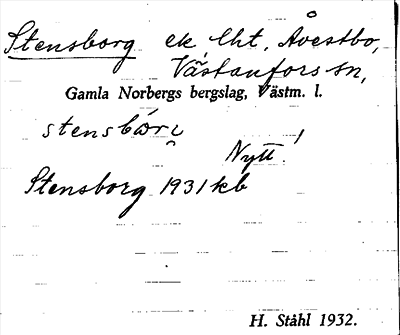 Stensborg ek lht. Åvestbo,
Västanfors sn,
Gamla Norbergs bergslag, Västm. l.
Nytt!
Stensborg 1931 kb
H. Ståhl 1932.